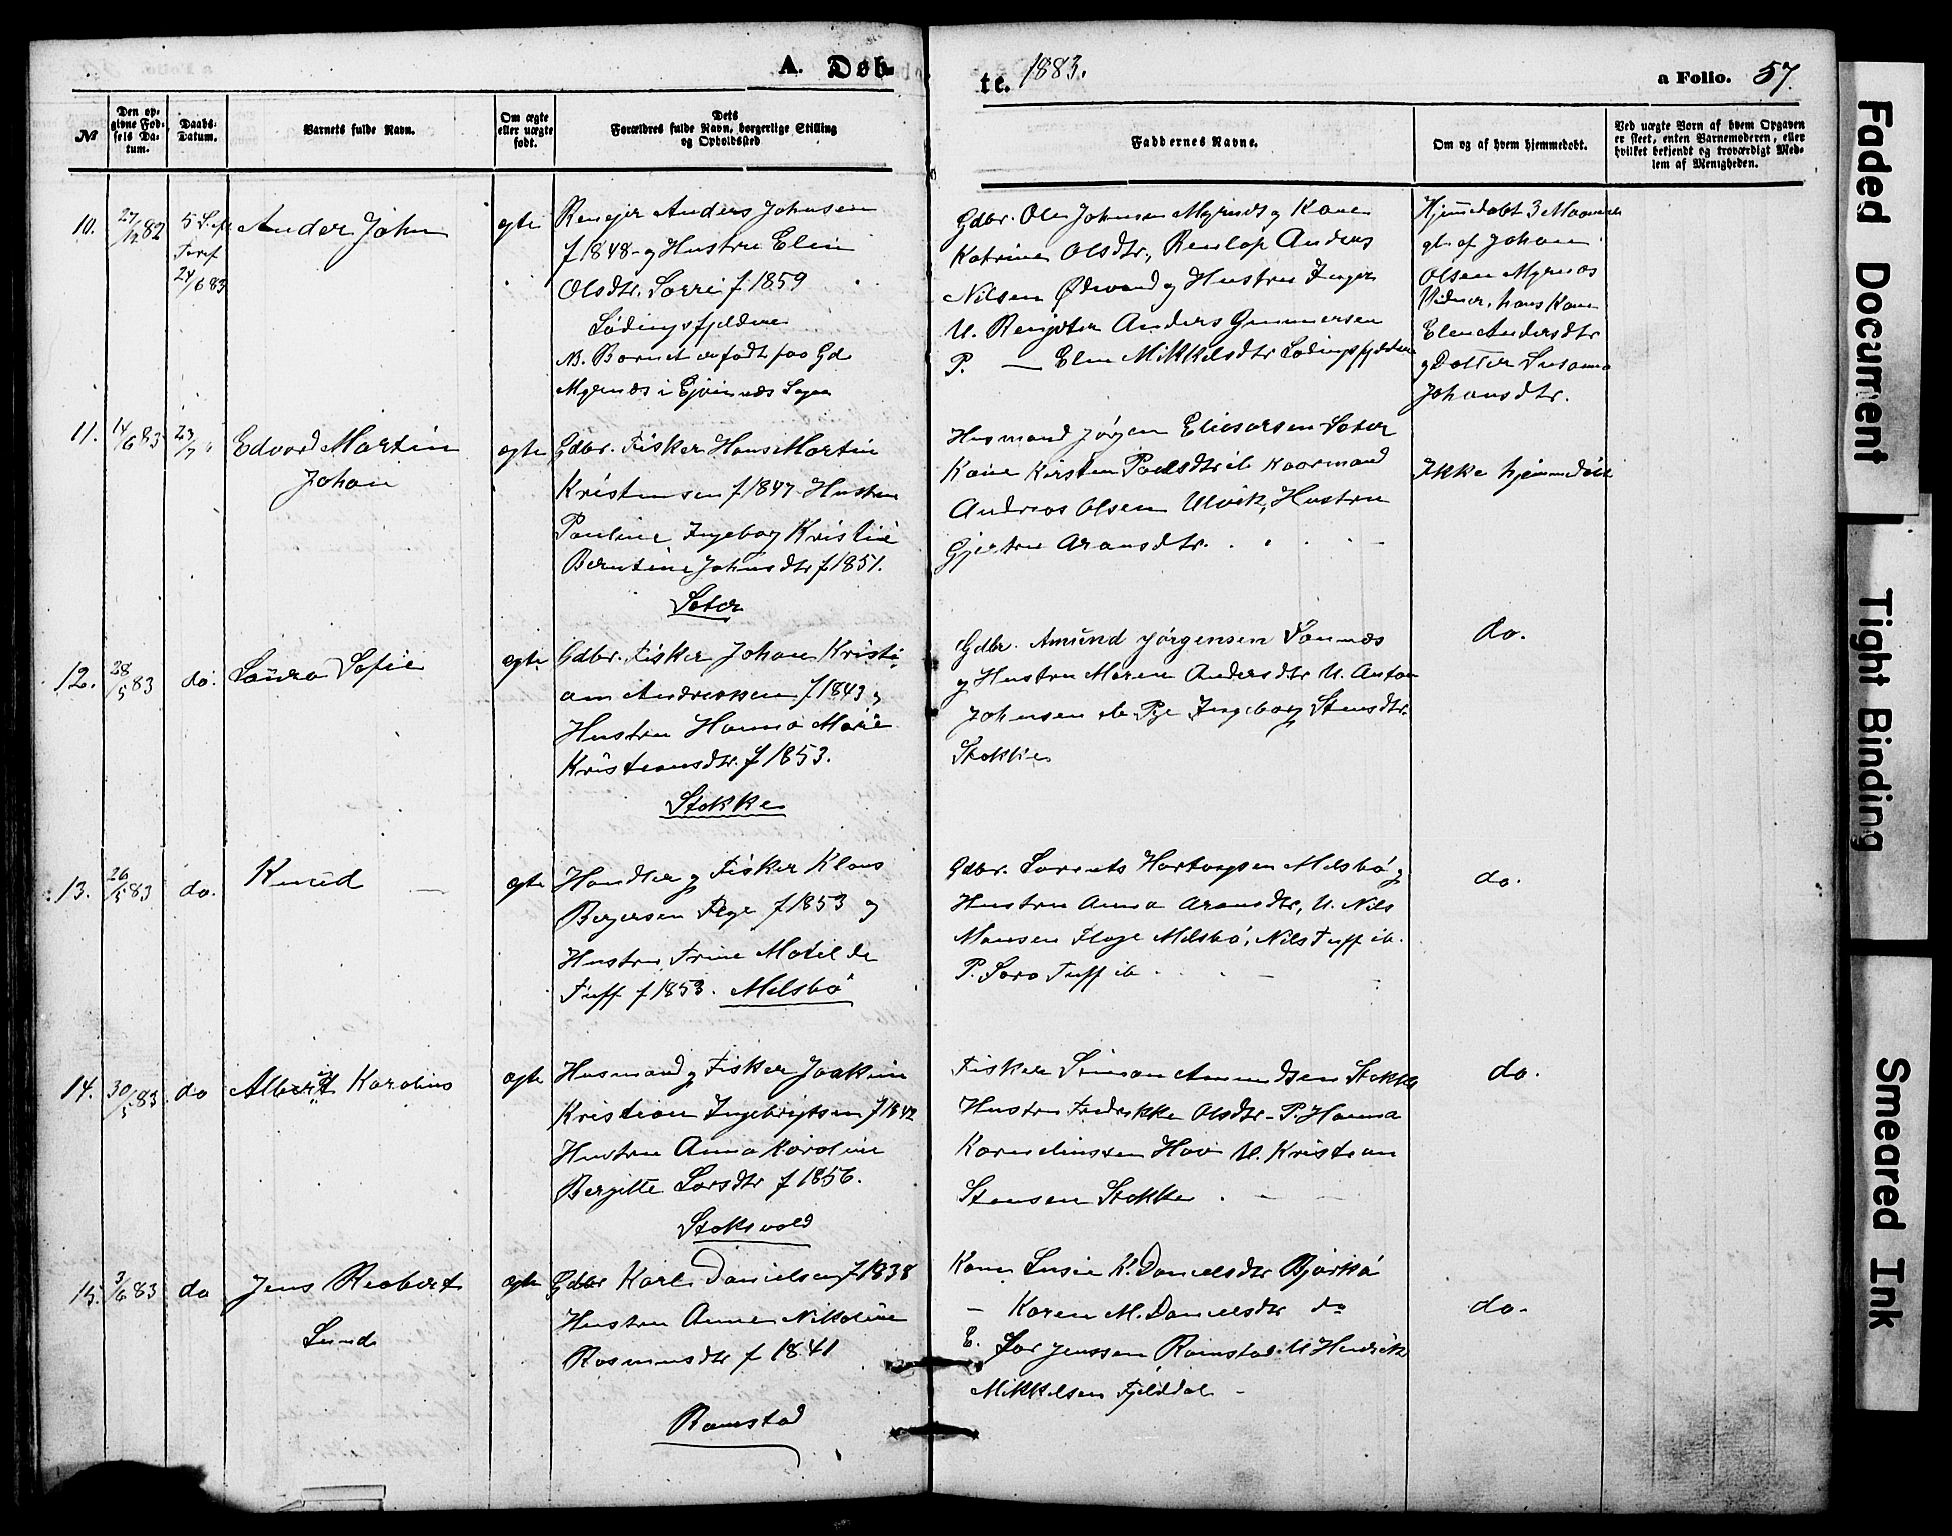 A. Døb-
te. 1883.
a Folio. 57.
№
Den op-
givne Fød-
sels Da-
tum.
Daabs-
Datum.
Barnets fulde Navn.
Om ægte
eller uægte
født.
Dets
Forældres fulde Navn, borgerlige Stilling
og Opholdssted
Faddernes Navne.
Om og af hvem hjemmedøbt.
Ved uægte Børn af hvem Opgaven
er skeet, enten Barnemoderen, eller
hvilket bekjendt og troværdigt Med-
lem af Menigheden.
10.
27/12 82
24/6 83
Ander John
ægte
Anders Johnsen
f 1848 og Hustru Elen
Olsdtr. Sarri f 1859
Lødingsfjeldene
NB. Barnet er født paa Gd
Myrnæs i Ejvinnæs Sogn
Gdbr. Ole Johnsen Myrnæs og Kone
Katrine Olsdtr., Anders
Nilsen og Hustru Inger
U. Anders Gunnersen
P. — Elen Mikkelsdtr Lødingsfjeldene
Hjemmedøbt 3 Maaneder
gl. af Johan
Olsen Myrnæs
Vidner. hans Kone
Elen Andersdtr
og Datter Susanna
Johansdtr.
11.
14/6 83
23/7 "
Edvard Martin
Johan
ægte
Gdbr. Fisker Hans Martin
Kristensen f 1847. Hustru
Pauline Ingebog Kristine
Berntine Johnsdtr f 1851.
Sater
Husmand Jørgen Eliesersen Sater
Kone Kirsten Poelsdtr ib Kaarmand
Andreas Olsen Ulvik, Hustru
Gjertru Aronsdtr.
Ikke hjemmedøbt
12.
28/5 83
do.
Laura Sofie
ægte
Gdbr. Fisker Johan Kristi-
an Andreassen f 1843 og
Hustru Hanna Marie
Kristiansdtr. f 1853.
Stokke
Gdbr. Amund Jørgensen Sannæs
og Hustru Maren Andersdtr U. Anton
Johnsen ib Pge Ingeborg Stensdtr.
Stokke
do.
13.
26/5 83
do.
Knud —
ægte
Handler og Fisker Klaus
Bergersen Flage f 1853 og
Hustru Trine Matilde
Tuff f 1853. Melsbø
Gdbr. Lorents Hartvigsen Melsbø og
Hustru Anna Aronsdtr, U. Nils
Monsen Flage Melsbø, Nils Tuff ib.
P. Sara Tuff ib —
do.
14.
30/5 83
do
Albert Karolius
ægte
Husmand og Fisker Joakim
Kristian Ingebrigtsen f 1842
Hustru Anna Karoline
Bergitte Larsdtr f 1856.
Stoksvold
Fisker Simon Amundsen Stokke
Hustru Fredrikke Olsdtr - P. Hanna
Korneliussen Hov U. Kristian
Stensen Stokke
do.
15.
3/6 83
do
Jens Reobert
Lund
ægte
Gdbr Karl Danielsen f 1838
Hustru Anne Nikoline
Rasmusdtr f 1841
Ramstad
Kone Susie K. Danielsdtr Bjørkø
— Karen M. Danielsdtr do
E. Lar Jenssen Ramstad U Hendrik
Mikkelsen Fjelddal —
do.
Faded Document
Tight Binding
Smeared Ink